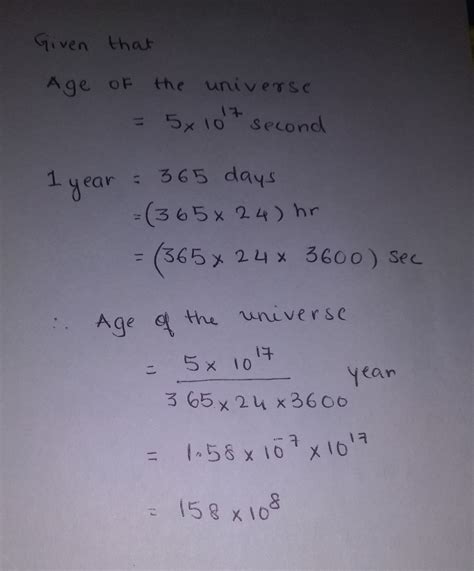 Given that
Age of the universe
= 5×10¹⁷ second
1 year = 365 days
=(365×24) hr
= (365×24×3600) sec
∴ Age of the universe
= 5×10¹⁷ / 365×24×3600 year
= 1.58×10⁻⁷×10¹⁷
= 158×10⁸